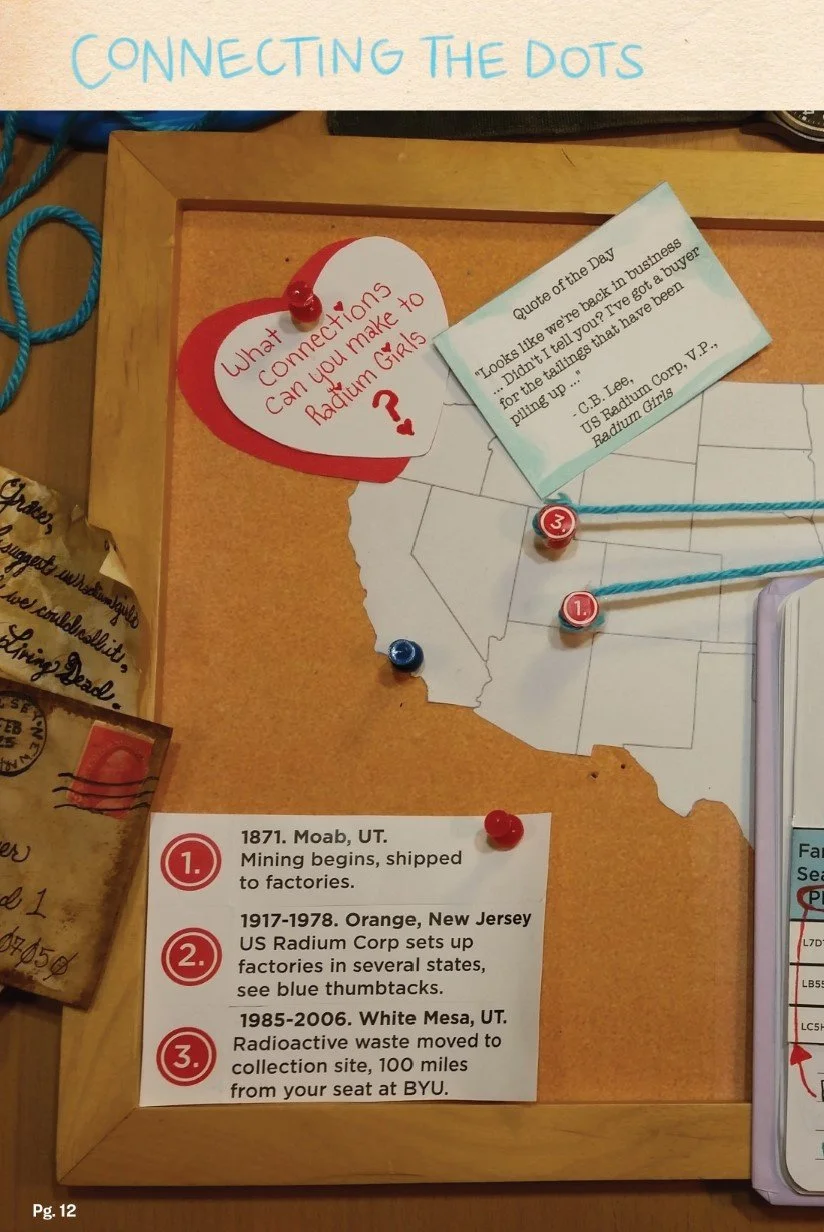 CONNECTING THE DOTS
What
connections
can you make to
Radium Girls
?
Quote of the Day
"Looks like we're back in business
... Didn't I tell you? I've got a buyer
for the tailings that have been
piling up ..."
- C.B. Lee,
US Radium Corp, V.P.,
Radium Girls
3.
1.
Grace,
suggest
we could call it,
Living Dead.
FEB
25
1
07050
1.
1871. Moab, UT.
Mining begins, shipped
to factories.
2.
1917-1978. Orange, New Jersey
US Radium Corp sets up
factories in several states,
see blue thumbtacks.
3.
1985-2006. White Mesa, UT.
Radioactive waste moved to
collection site, 100 miles
from your seat at BYU.
Fa
Sea
P
L7D
LB5
LC5
Pg. 12